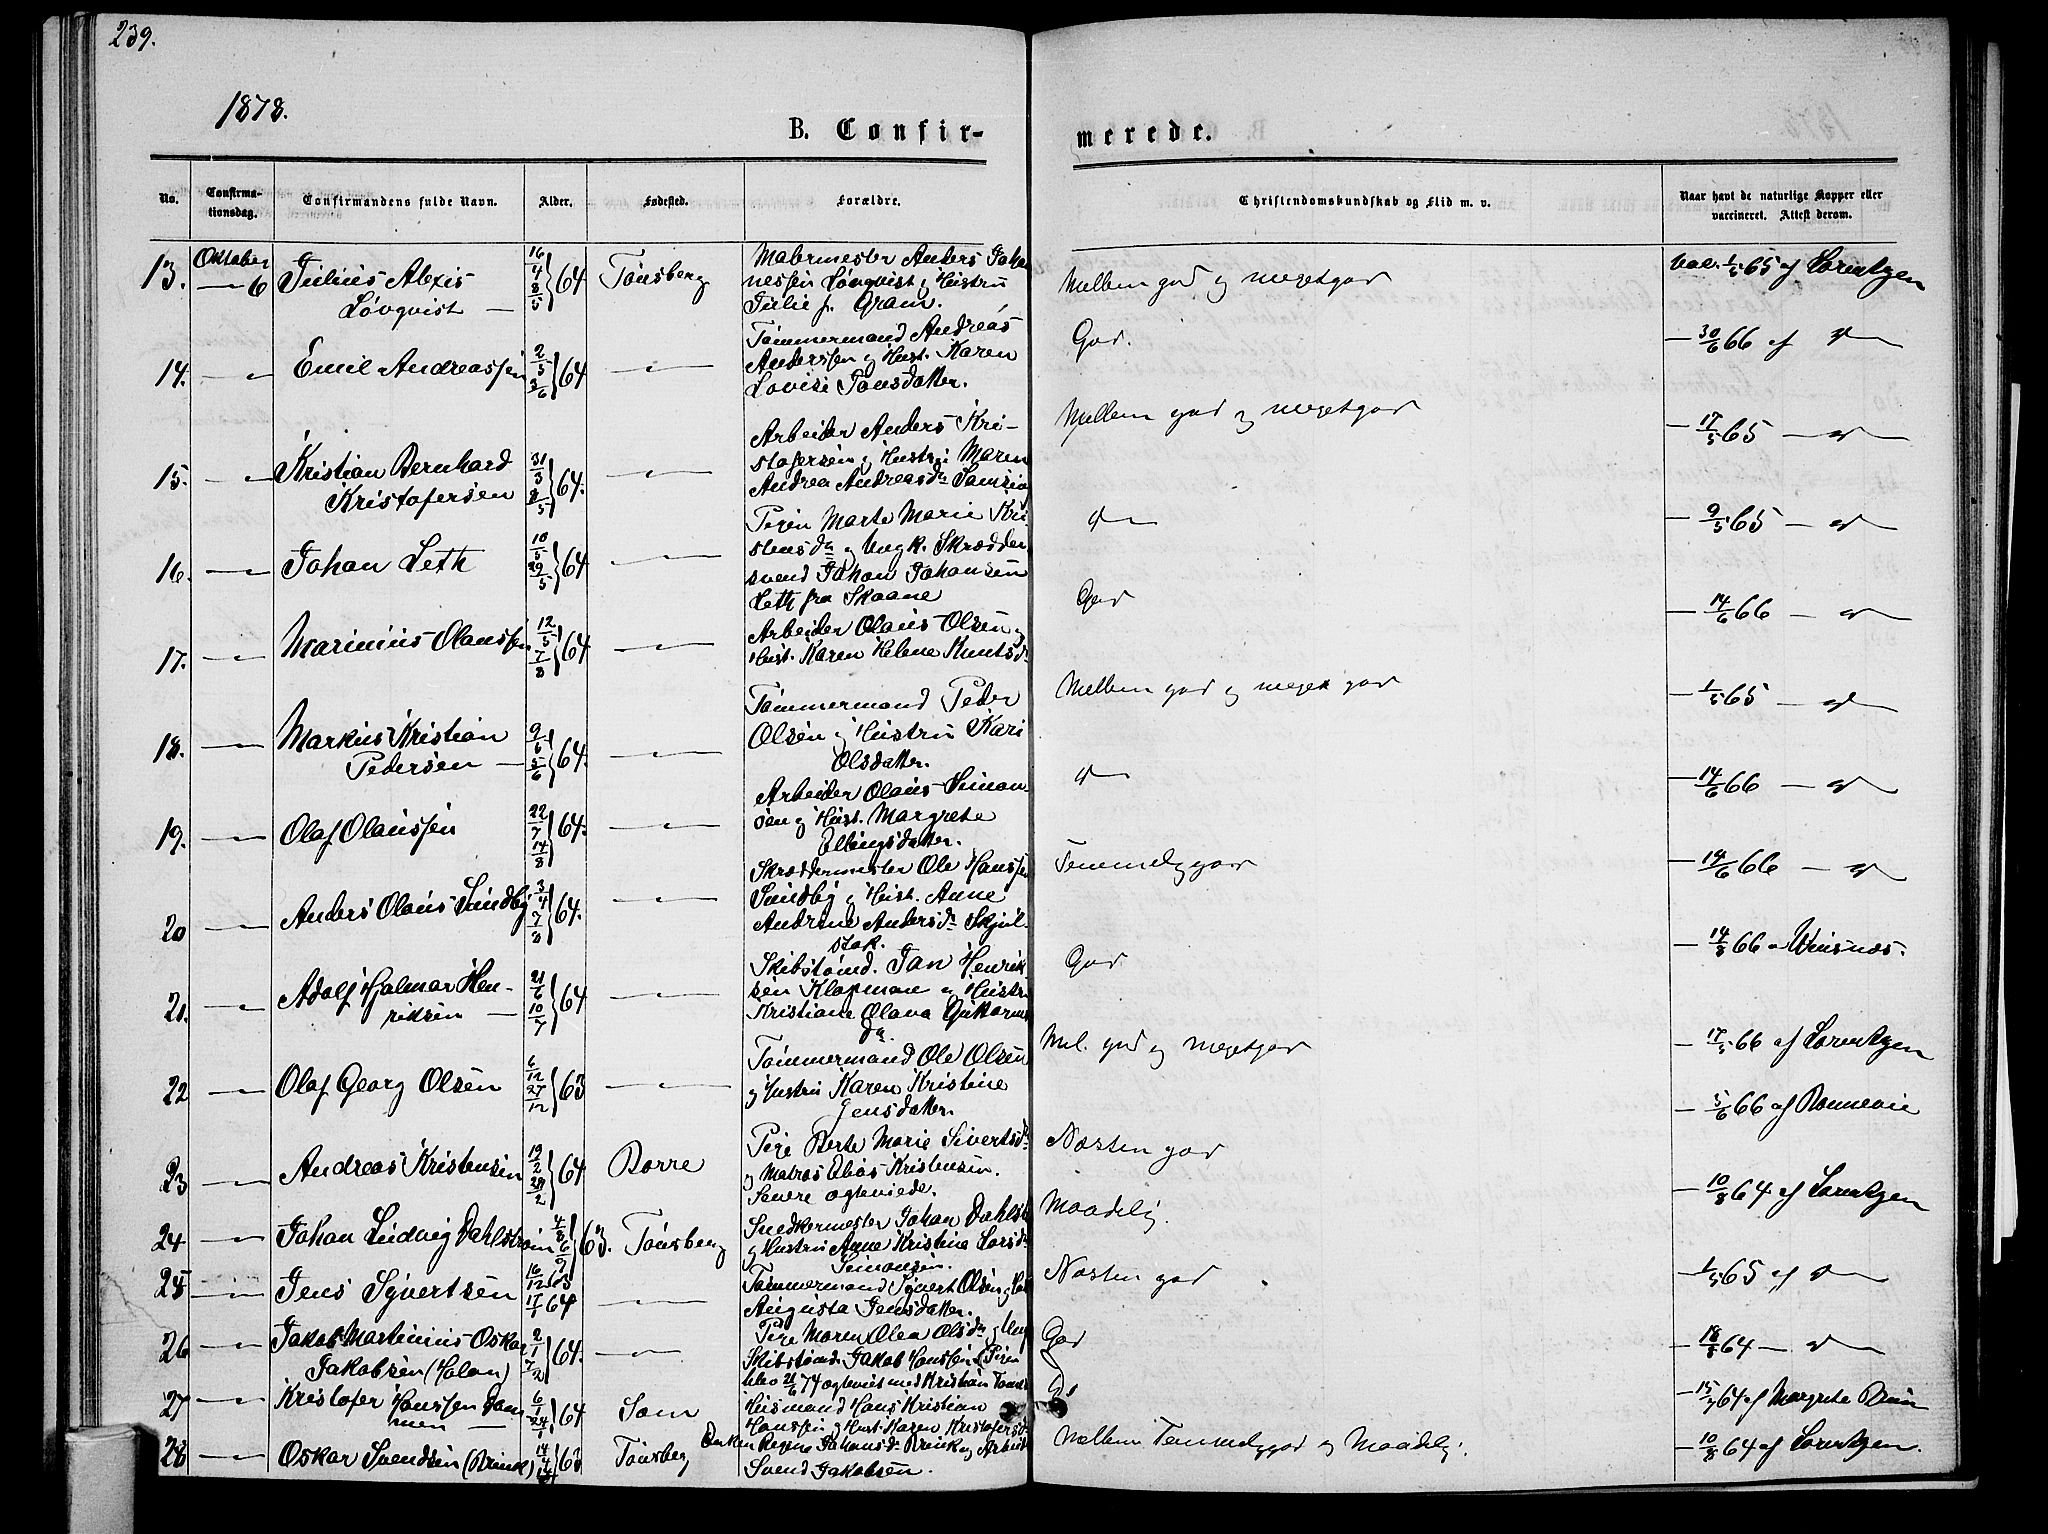 239.
1878.
B. Confir-
merede.
No.
Confirma-
tionsdag.
Confirmandens fulde Navn.
Alder.
Fødested.
Forældre.
Christendomskundskab og Flid m. v.
Naar havt de naturlige Kopper eller
vaccineret. Attest derom.
13. Oktober 6 Julius Alexis
Lövqvist — 16/4 8/5 } 64 Tönsberg
Malermester Anders Joha
nessen Lönqvist og Hustru
Julie f. Gram.
Mellem god og megetgod
vac. 1/5 65 af Lorentzen
14. —"— Emil Andreassen 2/5 3/6 } 64 —"—
Tömmermand Andreas
Anderssen og Hust. Karen
Lovise Tönsdatter.
God.
— 30/6 66 af do
15. —"— Kristian Bernhard
Kristofersen 31/3 8/5 } 64. —"—
Arbeider Anders Kri-
stofersen og Hustru Maren
Andrea Andreasdr
Mellem god og megetgod
— 17/5 65 — do
16. —"— Johan Leth 10/5 29/5 } 64 —"—
Pigen Marte Marie Kri
stensdr og Ungk. Skrædder
svend Johan Johansen
Leth fra Skaane
do
— 9/5 65 — do
17. —"— Marinius Olaussen 12/5 7/8 } 64 —"—
Arbeider Olaus Olsen og
Hust. Karen Helene Knutsdr
God
— 14/6 66 — do
18. —"— Markus Kristian
Pedersen — 9/6 } 64. —"—
Tömmermand Peder
Olsen og Hustru Kari
Olsdatter.
Mellem god og meget god
— 1/5 65 — do
19. —"— Olaf Olaussen 22/7 14/8 } 64. —"—
Arbeider Olaus Simon-
sen og Hust. Margrete
Ellingsdatter.
do
— 14/6 66 — do
20 —"— Anders Olaus Sundby 3/4 7/8 } 64. —"—
Skræddermester Ole Hanssen
Sundby og Hust. Anne
Andrine Andersdr Skjøl-
stok.
Temmelig god
— 14/6 66 — do
21. —"— Adolf Hjalmar Hen-
riksen — 21/6 10/7 } 64 —"—
Skibstømd. Jan Henrik
sen Klopmane og Hustru
Kristiane Olava
God
— 14/8 66
22 —"— Olaf Georg Olsen 6/12 27/12 } 63 —"—
Tömmermand Ole Olsen
og Hustru Karen Kristine
Jensdatter.
Mel. god og megetgod
— 17/5 66 af Lorentzen
23 —"— Andreas Kristensen 19/2 } 64 Borre
Pige Berte Marie Sivertsdr
og Matros Elias Kristensen.
Senere ægteviede.
Næsten god
— 5/6 66 af Rönnevie
24 —"— Johan Ludvig Dahlström 4/8 6/9 } 63. Tönsberg
Snedkermester Johan Dahlst
og Hustru Anne Kristine Larsdr
Simonsen.
Maadelig.
— 10/8 64 af Lorentzen
25 —"— Jens Syvertsen 16/12 63 17/1 64 —"—
Tömmermand Syvert Olsen og Hu
Augusta Jensdatter.
Næsten god
— 1/5 65 af do
26 —"— Jakob Martinius Oskar
Jakobsen (Holan) 2/1 7/2 } 64. —"—
Pige Maren Olea Olsdr og Ung
Skibstømd. Jakob Hanssen (Pigen
blev 21/6 74 ægteviet med Kristian
God
— 18/8 64 — do
27 —"— Kristofer Hanssen Dam
men — 6/1 24/1 } 64 Sem
Husmand Hans Kristian
Hanssen og Hust. Karen Kristofersd
Do
— 15/7 64 af Margrete Bruun
28 —"— Oskar Svendsen (Brink) } 63 Tönsberg
Enken Regine Johansdr Brink og Arbeid
Svend Jakobsen.
Mellem Temmeliggod og Maadelig.
— 10/8 64 af Lorentzen.